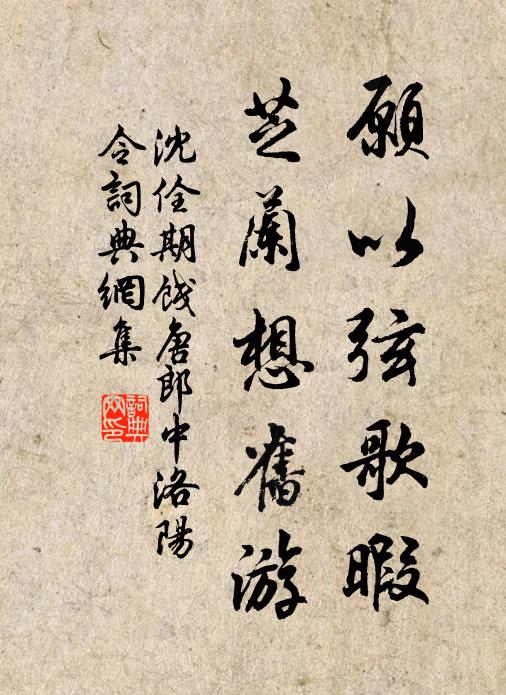 願以弦歌暇
芝蘭想舊游
沈佺期餞唐郎中洛陽
令詞典網集
詞典
网印